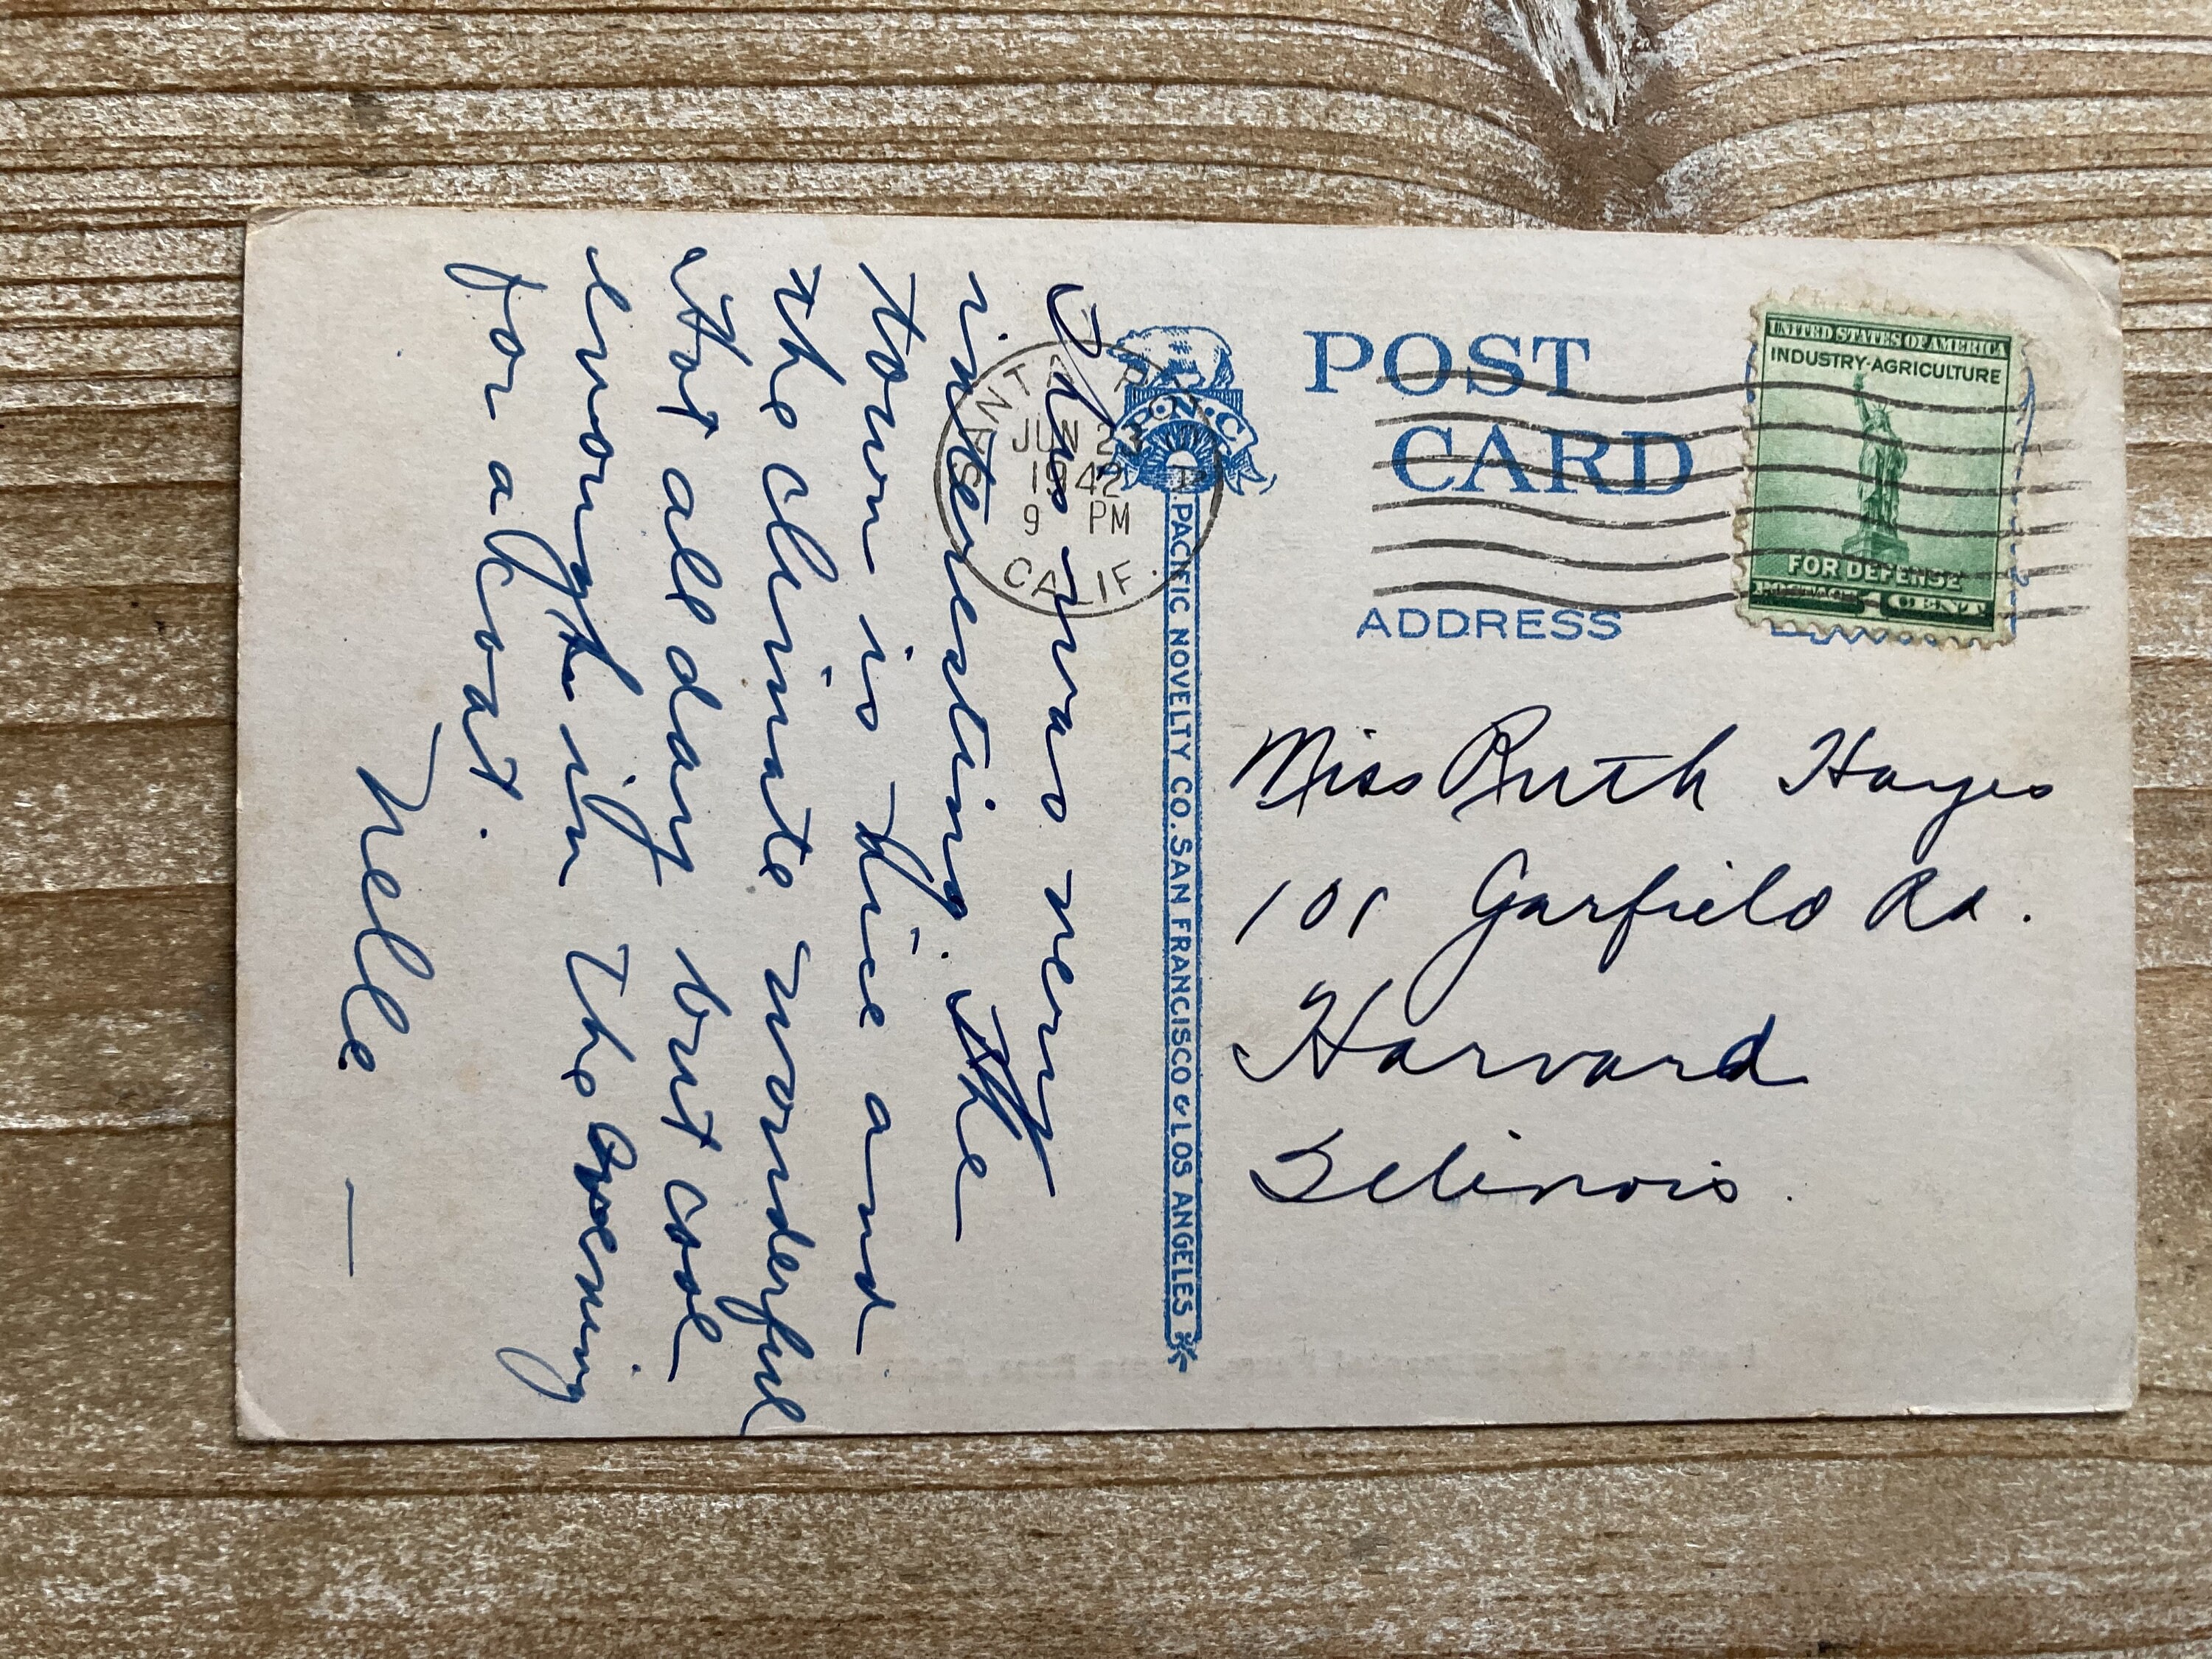 This was very
interesting. The
town is nice and
the climate wonderful
Hot all day but cool
enough in the evening
for a coat.
Nelle —
SANTA ROSA
JUN 23
1942
9 PM
CALIF.
P.N.C.
PACIFIC NOVELTY CO. SAN FRANCISCO & LOS ANGELES
POST
CARD
ADDRESS
UNITED STATES OF AMERICA
INDUSTRY·AGRICULTURE
FOR DEFENSE
POSTAGE 1 CENT
Miss Ruth Hayes
101 Garfield Rd.
Harvard
Illinois.